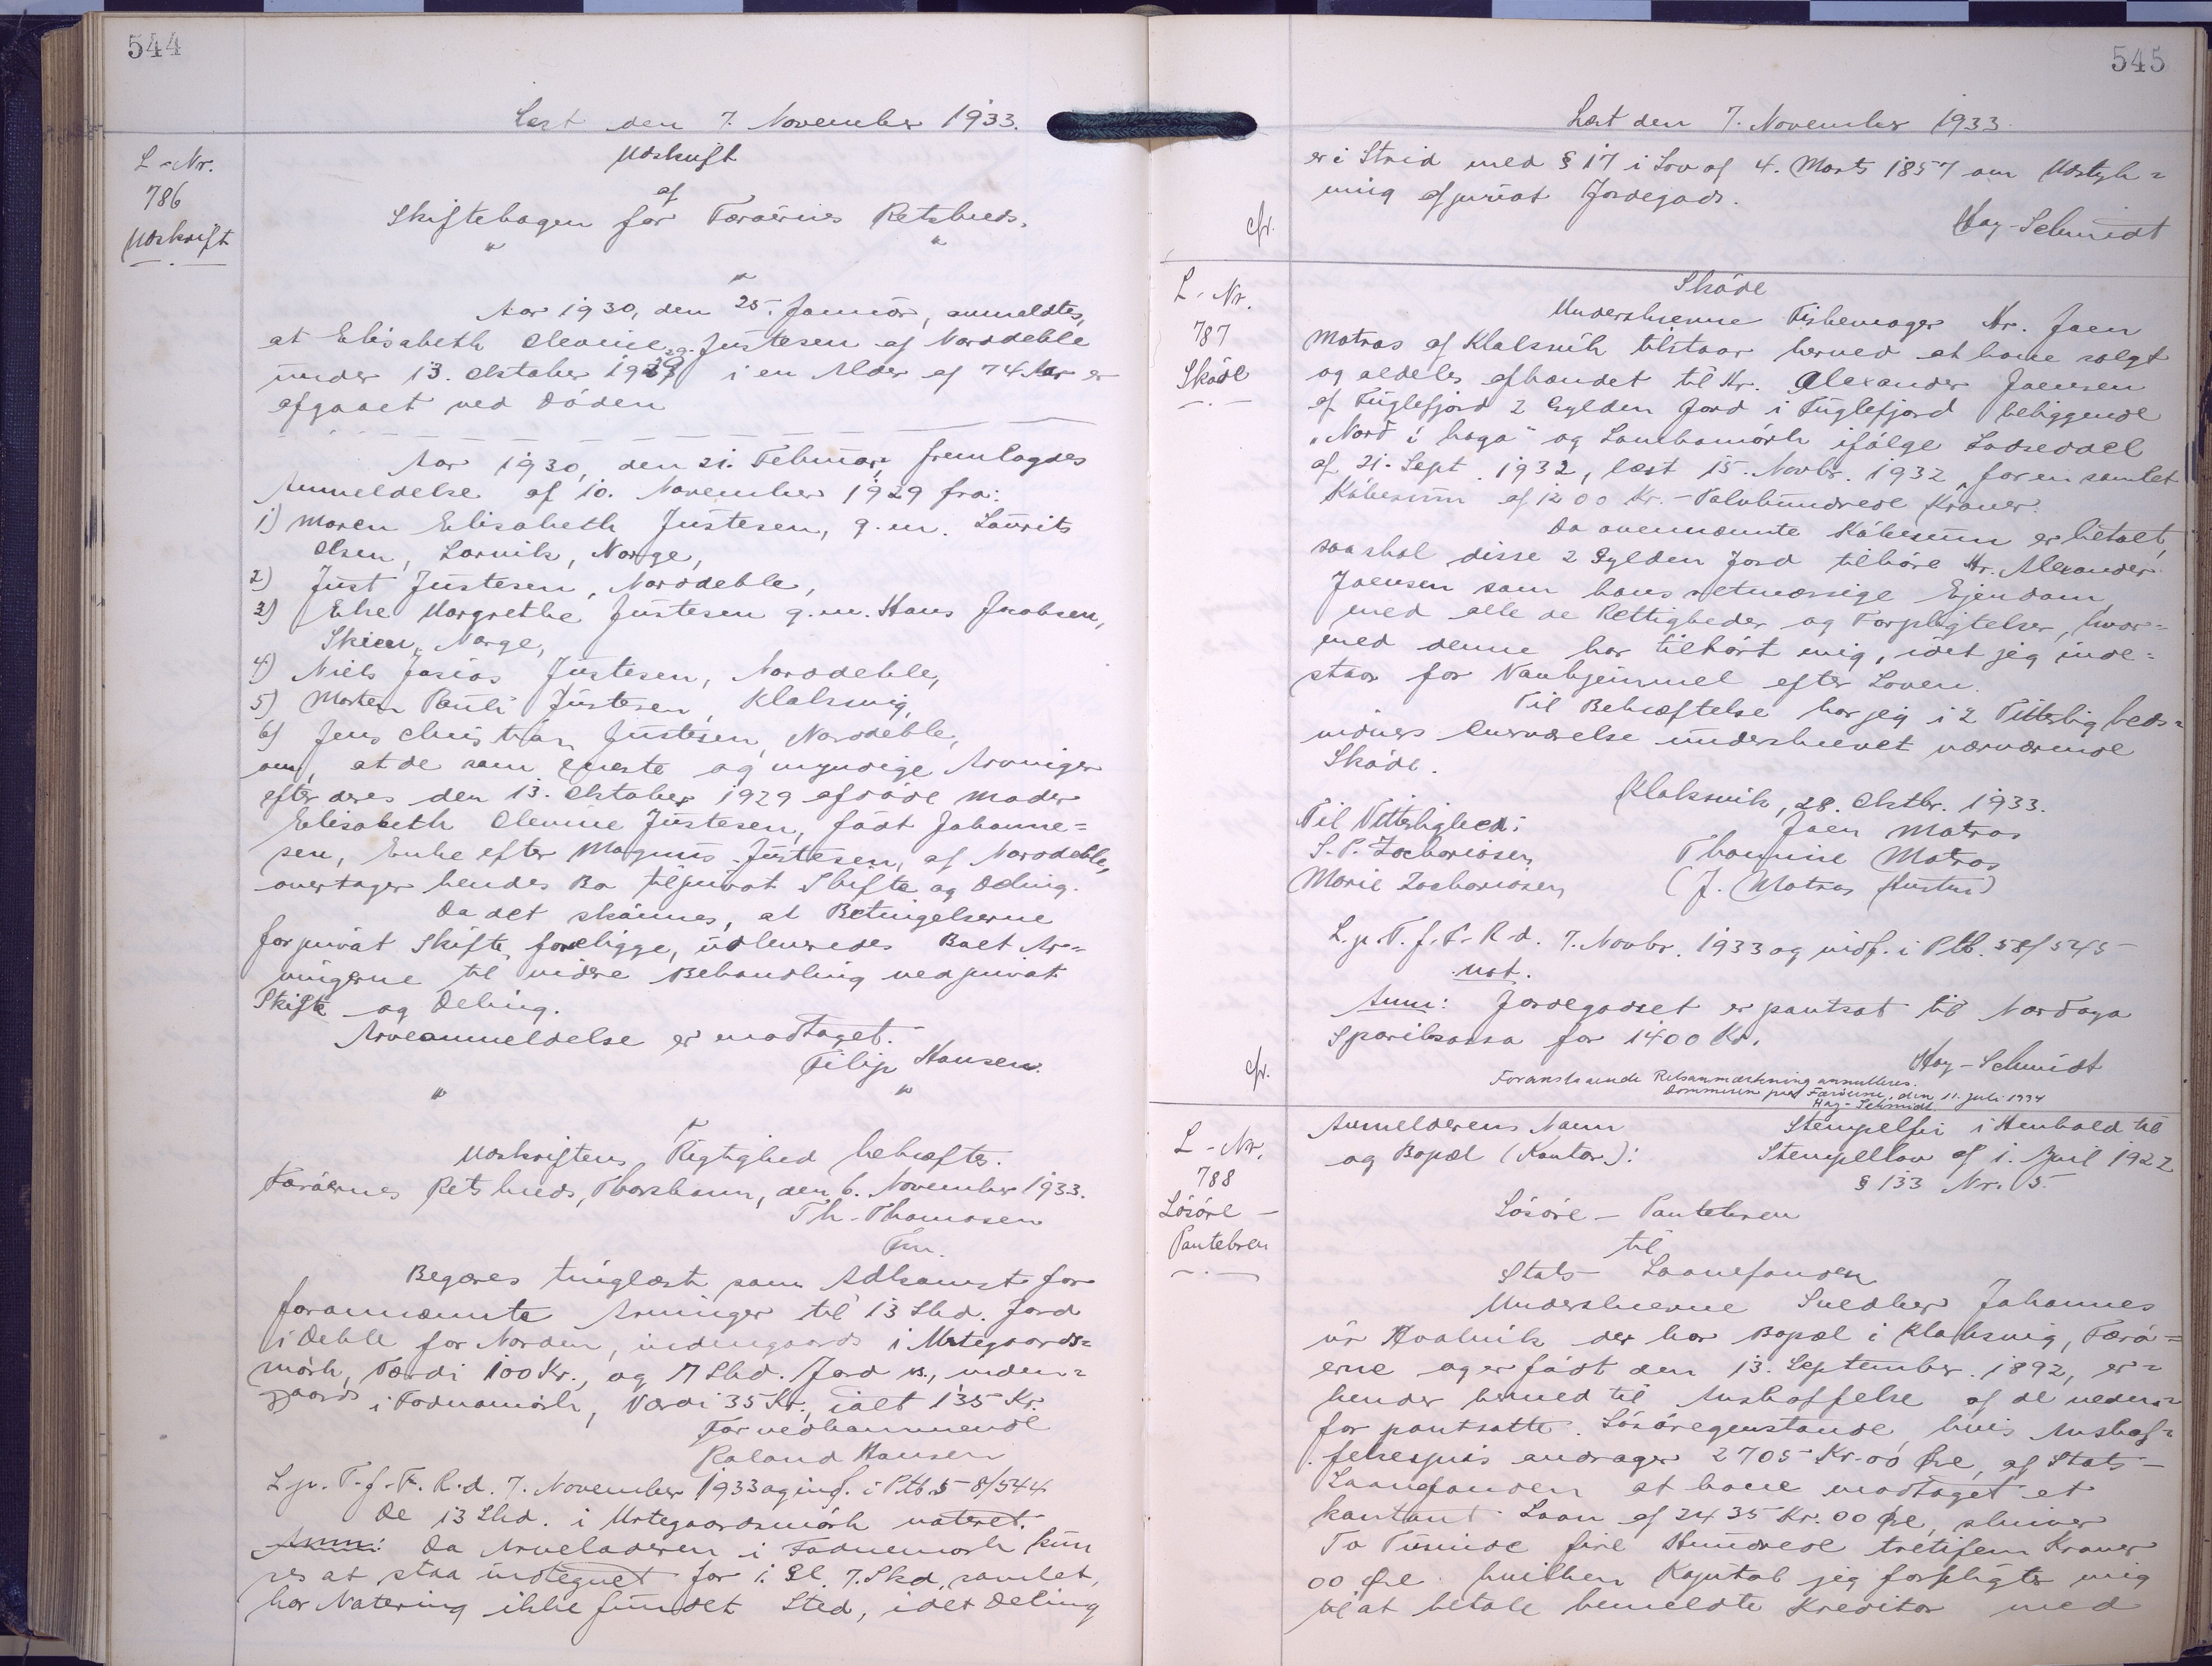 544
Læst den 7. November 1933.
L-Nr.
786
Udskrift
Udskrift
af
Skiftebogen for Færøernes Retskreds.
" "
"
Aar 1930, den 25. Januar, anmeldtes,
at Elisabeth Olevine Justesen af Norddeble
under 13. Oktober 1929 i en Alder af 74 Aar er
afgaaet ved Døden
Aar 1930, den 21. Februar, fremlagdes
Anmeldelse af 10. November 1929 fra:
1) Maren Elisabeth Justesen, g.m. Laurits
Olsen, Larvik, Norge,
2) Just Justesen, Norddeble,
3) Else Margrethe Justesen g.m. Hans Jacobsen,
Skien, Norge,
4) Niels Josias Justesen, Norddeble,
5) Morten Pauli Justesen, Klaksvig,
6) Jens Christian Justesen, Norddeble,
om, at de som eneste og myndige Arvinger
efter deres den 13. Oktober 1929 afdøde Moder
Elisabeth Olevine Justesen, født Johanne=
sen, Enke efter Magnus Justesen, af Norddeble,
overtager hendes Bo til privat Skifte og Deling.
Da det skønnes, at Betingelserne
for privat Skifte foreligge, udleveredes Boet Ar=
vingerne til videre Behandling ved privat
Skifte og Deling.
Arveanmeldelse er modtaget.
Filip Hansen.
" "
"
Udskriftens Rigtighed bekræftes.
Færøernes Retskreds, Thorshavn, den 6. November 1933.
Th. Thomasen
Fm.
Begæres tinglæst som Adkomst for
forannævnte Arvinger til 13 Skd. Jord
i Deble for Norden, indengaards i Urtegaards=
mørk, Værdi 100 Kr., og 7 Skd. Jord s., inden=
gaards i Fodnamørk, Værdi 35 Kr., ialt 135 Kr.
For vedkommende
Roland Hansen
L.p.T.f.F.R.d. 7. November 1933 og inf. i Ptb. 58/544
De 13 Skd. i Urtegaardsmørk noteret.
Anm: Da Arveladeren i Fodnemørk kun
ses at staa indtegnet for 1 Gl. 7. Skd. samlet,
har Notering ikke fundet Sted, idet Deling
545
Læst den 7. November 1933
er i Strid med § 17 i Lov af 4. Marts 1857 om Udstyk=
ning af privat Jordegods.
cfr.
Hay-Schmidt
L.-Nr.
787
Skøde
Skøde
Underskrevne Fiskemager Hr. Joen
Matras af Klaksvik tilstaar herved at have solgt
og aldeles afhændet til Hr. Alexander Joensen
af Fuglefjord 2 Gylden Jord i Fuglefjord beliggende
"Nord i haga" og Lambamørk ifølge Lodseddel
af 21. Sept. 1932, læst 15. Novbr. 1932, for en samlet
Købesum af 1200 Kr. - Tolvhundrede Kroner.
Da ovennævnte Købesum er betalt,
saa skal disse 2 Gylden Jord tilhøre Hr. Alexander
Joensen som hans retmæssige Ejendom
med alle de Rettigheder og Forpligtelser, hvor=
med denne har tilhørt mig, idet jeg inde=
staar for Vanhjemmel efter Loven.
Til Bekræftelse har jeg i 2 Vitterligheds=
vidners Overværelse underskrevet nærværende
Skøde.
Klaksvik, 28. Oktbr. 1933.
Til Vitterlighed: Joen Matras
S. P. Zachariasen Thomine Matras
Marie Zachariasen (J. Matras Hustru)
L.p.T.f.F.R.d. 7. Novbr. 1933 og indf. i Ptb. 58/545
not.
Anm: Jordegodset er pantsat til Nordoya
Sparikassa for 1400 Kr.
cfr.
Hay-Schmidt
Foranstaaende Retsanmærkning annulleres.
Dommeren paa Færøerne, den 11. juli 1934
Hay-Schmidt
L-Nr.
788
Løsøre -
Pantebrev
Anmelderens Navn Stempelfri i Henhold til
og Bopæl (Kontor): Stempellov af 1. April 1922
§ 133 Nr. 5.
Løsøre - Pantebrev
til
Stats-Laanefonden
Underskrevne Snedker Johannes
úr Hvalvik der har Bopæl i Klaksvig, Færø=
erne og er født den 13. September 1892, er=
kender herved til Anskaffelse af de neden=
for pantsatte Løsøregenstande, hvis Anskaf=
felsespris andrager 2705 Kr. 00 Øre, af Stats-
Laanefonden at have modtaget et
kontant Laan af 2435 Kr. 00 Øre, skriver
To Tusinde fire Hundrede tretifem Kroner
00 Øre. hvilken Kapital jeg forpligter mig
til at betale bemeldte Kreditor med